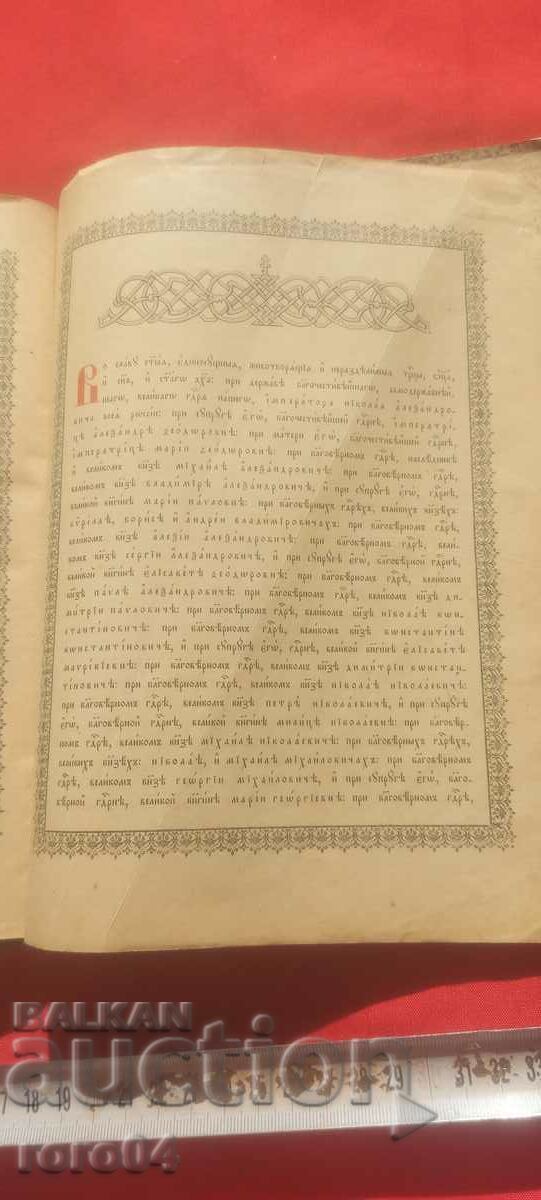 Во славу ст҃ыѧ, є҆диносꙋщныѧ, животворѧщїѧ и҆ нераздѣлимыѧ трⷪ҇цы, ѻ҆ц҃а̀,
и҆ сн҃а, и҆ ст҃агѡ дх҃а: при державѣ бл҃гочестивѣйшагѡ, самодержавнѣй-
шагѡ, великагѡ гдⷭ҇рѧ нашегѡ, і҆мператора нїкола́ѧ а҆леѯандро-
вича всеѧ рѡссїи: при сꙋпрꙋгѣ є҆гѡ̀, бл҃гочестивѣйшей гдⷭ҇рнѣ, і҆мператри-
цѣ а҆леѯандрѣ ѳеодѡровнѣ: при матери є҆гѡ̀, бл҃гочестивѣйшей гдⷭ҇рнѣ,
і҆мператрицѣ марїи ѳеодѡровнѣ: при бл҃говѣрномъ гдⷭ҇рѣ, наслѣдникѣ
и҆ великомъ кнѧ́зѣ мїхаилѣ а҆леѯандровичѣ: при бл҃говѣрномъ гдⷭ҇рѣ,
великомъ кн҃зѣ владимїрѣ а҆леѯандровичѣ, и҆ при сꙋпрꙋгѣ є҆гѡ̀, гдⷭ҇рнѣ,
великой кн҃гинѣ марїи паѵловнѣ: при бл҃говѣрныхъ гдⷭ҇рѣхъ, великихъ кн҃зѣхъ:
кѷриллѣ, борисѣ и҆ а҆ндреи владимїровичахъ: при бл҃говѣрномъ гдⷭ҇рѣ,
великомъ кн҃зѣ а҆леѯїи а҆леѯандровичѣ: при бл҃говѣрномъ гдⷭ҇рѣ, вели-
комъ кн҃зѣ сергїи а҆леѯандровичѣ, и҆ при сꙋпрꙋгѣ є҆гѡ̀, бл҃говѣрной гдⷭ҇рнѣ,
великой кн҃гинѣ є҆лїсаветѣ ѳеодѡровнѣ: при бл҃говѣрномъ гдⷭ҇рѣ, великомъ
кн҃зѣ паѵлѣ а҆леѯандровичѣ: при бл҃говѣрномъ гдⷭ҇рѣ, великомъ кн҃зѣ ди-
митрїи паѵловичѣ: при бл҃говѣрномъ гдⷭ҇рѣ, великомъ кн҃зѣ нїколаѣ кѡн-
стантїновичѣ: при бл҃говѣрномъ гдⷭ҇рѣ, великомъ кн҃зѣ кѡнстантїнѣ
кѡнстантїновичѣ, и҆ при сꙋпрꙋгѣ є҆гѡ̀, гдⷭ҇рнѣ, великой кн҃гинѣ є҆лїсаветѣ
маѵрикїевнѣ: при бл҃говѣрномъ гдⷭ҇рѣ, великомъ кн҃зѣ димитрїи кѡнстан-
тїновичѣ: при бл҃говѣрномъ гдⷭ҇рѣ, великомъ кн҃зѣ нїколаѣ нїколаевичѣ:
при бл҃говѣрномъ гдⷭ҇рѣ, великомъ кн҃зѣ петрѣ нїколаевичѣ, и҆ при сꙋпрꙋгѣ
є҆гѡ̀, бл҃говѣрной гдⷭ҇рнѣ, великой кн҃гинѣ милицѣ нїколаевнѣ: при бл҃говѣр-
номъ гдⷭ҇рѣ, великомъ кн҃зѣ мїхаилѣ нїколаевичѣ: при бл҃говѣрныхъ гдⷭ҇рѣхъ,
великихъ кн҃зѣхъ: нїколаѣ, и҆ мїхаилѣ мїхаиловичахъ: при бл҃говѣрномъ
гдⷭ҇рѣ, великомъ кн҃зѣ геѡргїи мїхаиловичѣ, и҆ при сꙋпрꙋгѣ є҆гѡ̀, бл҃го-
вѣрной гдⷭ҇рнѣ, великой кн҃гинѣ марїи геѡргїевнѣ: при бл҃говѣрномъ гдⷭ҇рѣ,
BALKAN
auction
18 19 29 31 32 33
roro04